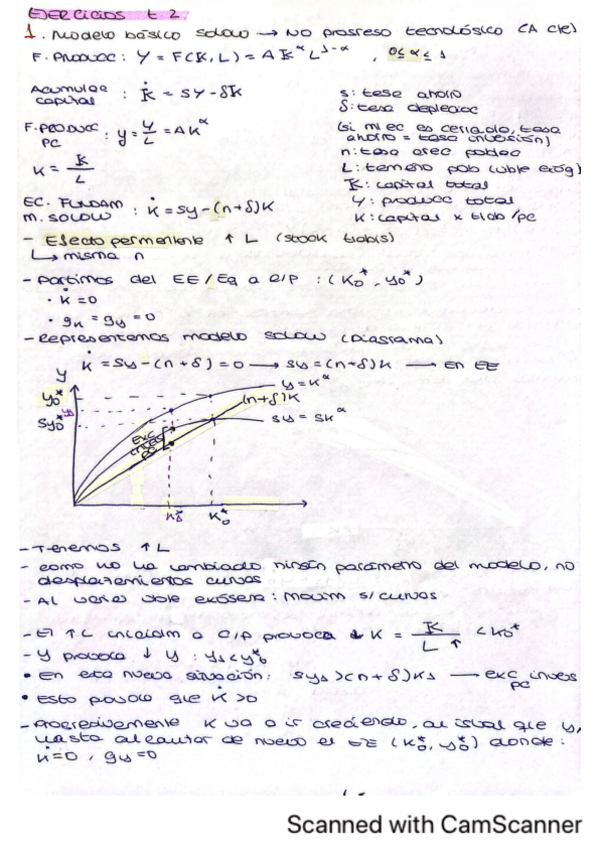 EJERCICIOS t.2.
1. Modelo básico solow → No progreso tecnológico (A cte)
F. Producc: Y = F(K, L) = A K^α L^1-α , 0 ≤ α ≤ 1
Acumulac capital : K̇ = sY - δK
s: tasa ahorro
δ: tasa depreciac
F. PRODUCC PC : y = Y/L = AK^α
(si m ec es cerrado, tasa ahorro = tasa inversión)
n: tasa crec poblac
K = K/L
L: tamaño pob (vble exóg)
K: capital total
EC. FUNDAM M. SOLOW : k̇ = sy - (n+δ)K
Y: producc total
K: capital x trab/pc
- Efecto permanente ↑ L (stock trabjs)
↳ misma n
- Partimos del EE/Eq a l/p : (K0*, y0*)
· k̇ = 0
· gk = gy = 0
- Representemos modelo solow (Diagrama)
k̇ = sy - (n+δ) = 0 → sy = (n+δ)k → en EE
y
y = K^α
y0*
(n+δ)K
sy = sK^α
sy0*
exc invers PC
K0*
- Tenemos ↑ L
- como no ha cambiado ningún parámetro del modelo, no desplazamientos curvas
- Al variar vble exógena: movim s/ curvas
- El ↑ L inicialm a c/p provoca ↓ K = K/L ↑ < K0*
- Y provoca ↓ y : y1 < y0*
• En esta nueva situación: sy1 > (n+δ)K1 → exc invers PC
• Esto provoca que k̇ > 0
- Progresivamente K va a ir creciendo, al igual que y, hasta alcanzar de nuevo el EE (K0*, y0*) donde:
k̇ = 0, gy = 0
Scanned with CamScanner